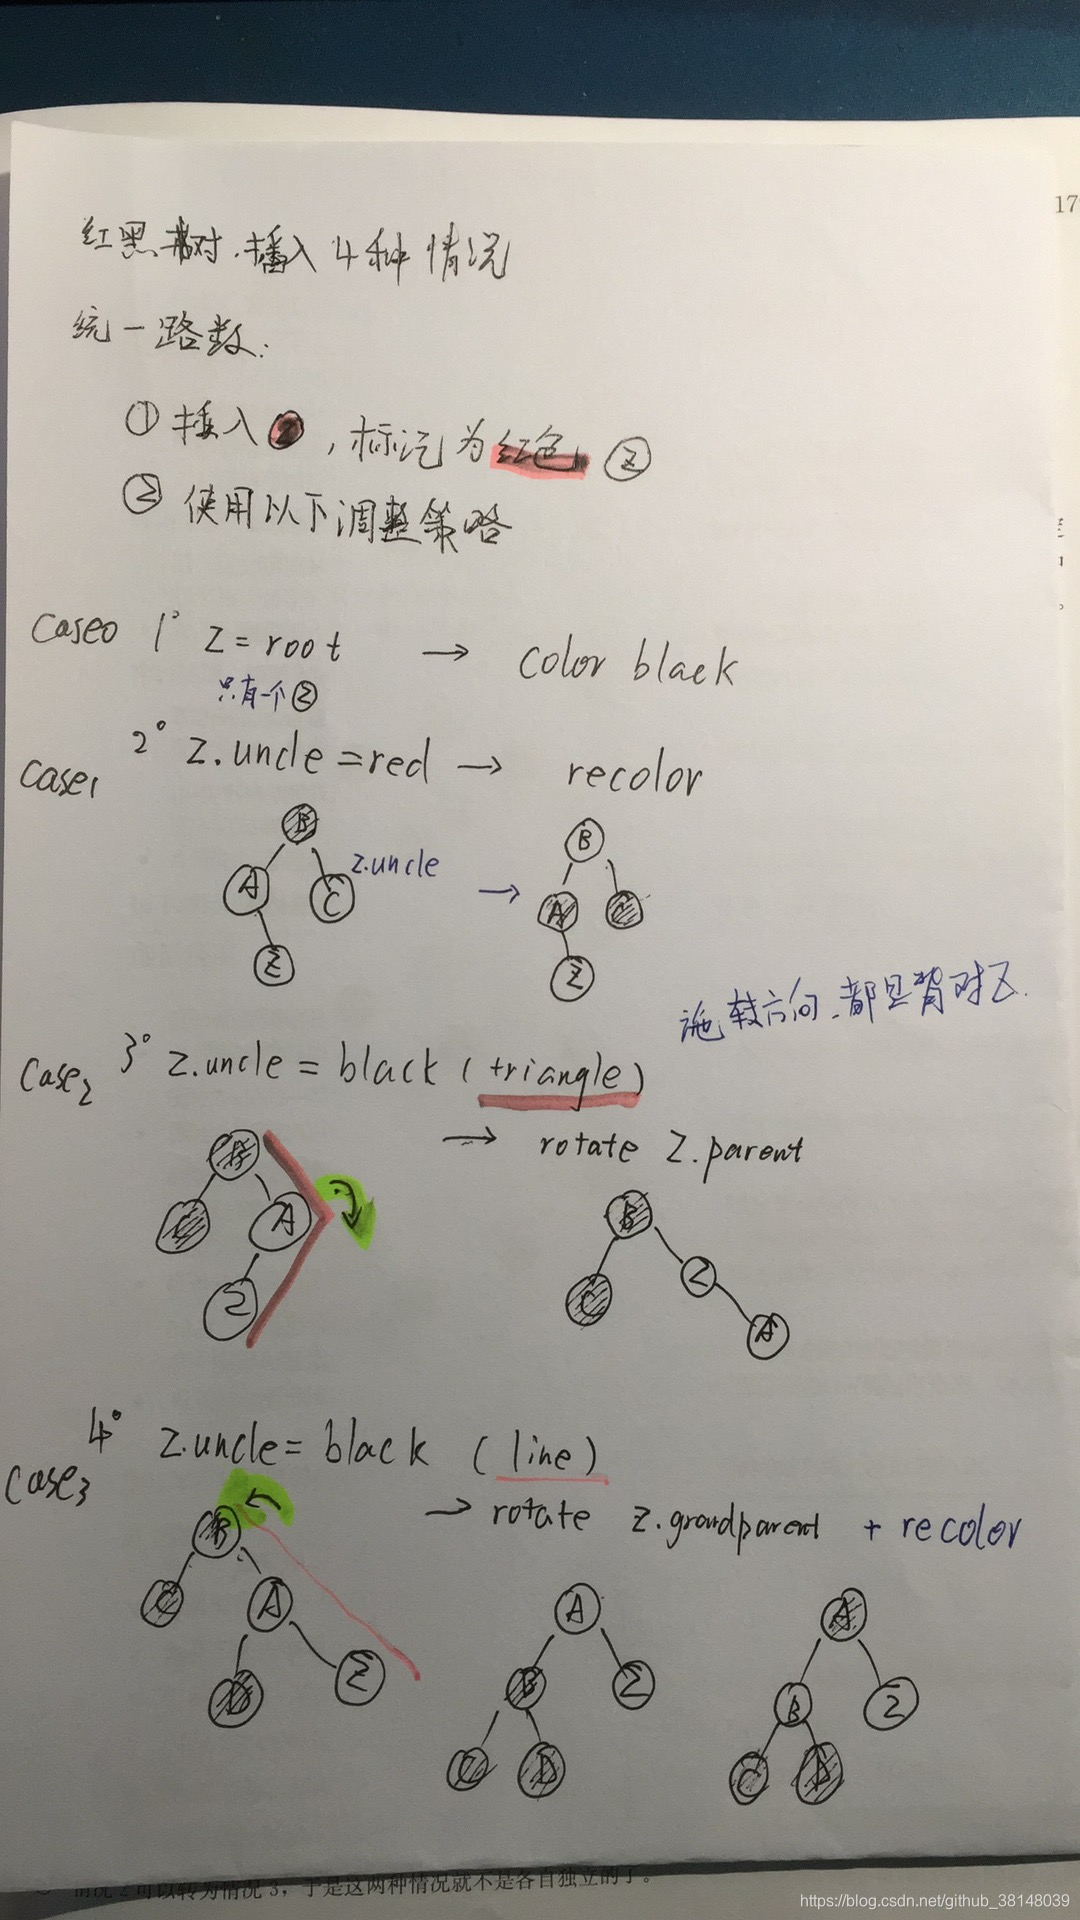 红黑树.插入4种情况
统一路数:
① 插入 , 标记为红色 Z
② 使用以下调整策略
case0 1° Z = root → color black
只有一个 Z
case1 2° Z.uncle = red → recolor
B
A C Z.uncle
Z
→
B
A C
Z
旋转方向.都是背对Z.
case2 3° Z.uncle = black (triangle)
→ rotate Z.parent
C A
Z
B
C Z
A
case3 4° Z.uncle = black (line)
→ rotate Z.grandparent + recolor
B
C A
D Z
A
B Z
C D
A
B Z
C D
情况2可以转为情况3,于是这两种情况就不是各自独立的了。
17
https://blog.csdn.net/github_38148039